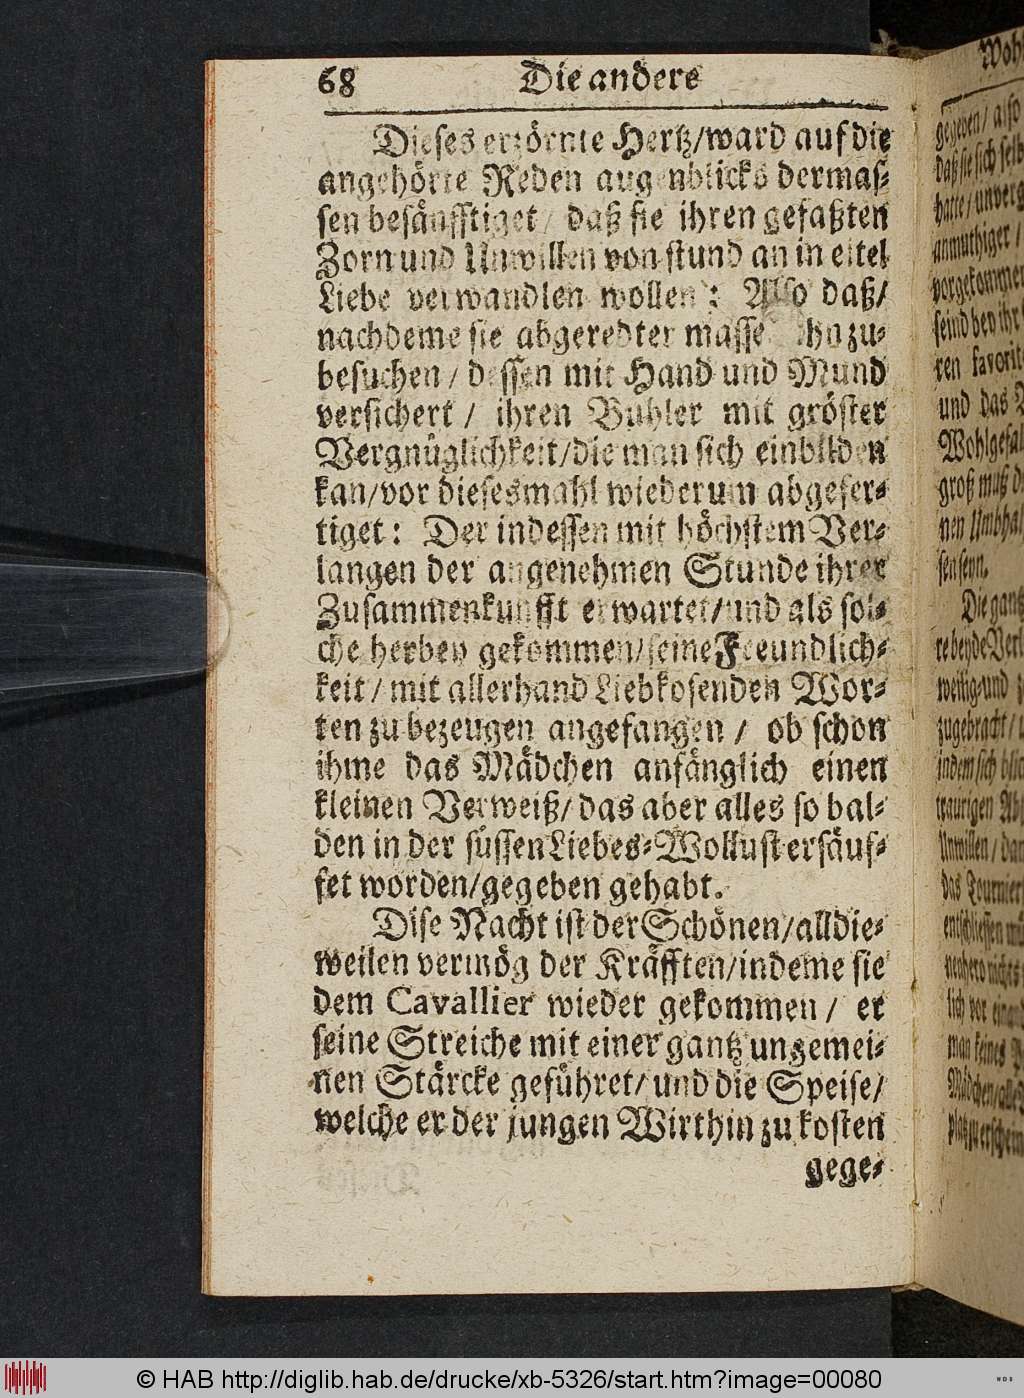 68 Die andere
Dieses erzörnte Hertz/ward auf die
angehörte Reden augenblicks dermas⸗
sen besänfftiget / daß sie ihren gefaßten
Zorn und Unwillen von stund an in eitel
Liebe verwandlen wollen: Also daß/
nachdeme sie abgeredter masse ihn zu⸗
besuchen / dessen mit Hand und Mund
versichert / ihren Buhler mit gröster
Vergnüglichkeit/die man sich einbilden
kan/vor diesesmahl wiederum abgefer⸗
tiget: Der indessen mit höchstem Ver⸗
langen der angenehmen Stunde ihrer
Zusammenkunfft erwartet/und als sol⸗
che herbey gekommen/seine Freundlich⸗
keit / mit allerhand Liebkosenden Wor⸗
ten zu bezeugen angefangen / ob schon
ihme das Mädchen anfänglich einen
kleinen Verweiß/ das aber alles so bal⸗
den in der süssen Liebes⸗Wollust ersäuf⸗
fet worden/gegeben gehabt.
Dise Nacht ist der Schönen/alldie⸗
weilen vermög der Kräfften/indeme sie
dem Cavallier wieder gekommen / er
seine Streiche mit einer gantz ungemei⸗
nen Stärcke geführet/ und die Speise/
welche er der jungen Wirthin zu kosten
gege⸗
gegeben/ also
daß sie sich selb
hatte/
anmuthiger /
vorgekommen
seind bey ihr
ren favorit
und das
Wohlgefal
groß muß
nen Umbhal
sen seyn.
Die gantz
re beyde Verl
weilig und
zugebracht /
indem sich
traurigen Ab
Unwillen / da
das Tournier
entschliessen
lich vor eine
man keines
Mädchen/
© HAB http://diglib.hab.de/drucke/xb-5326/start.htm?image=00080